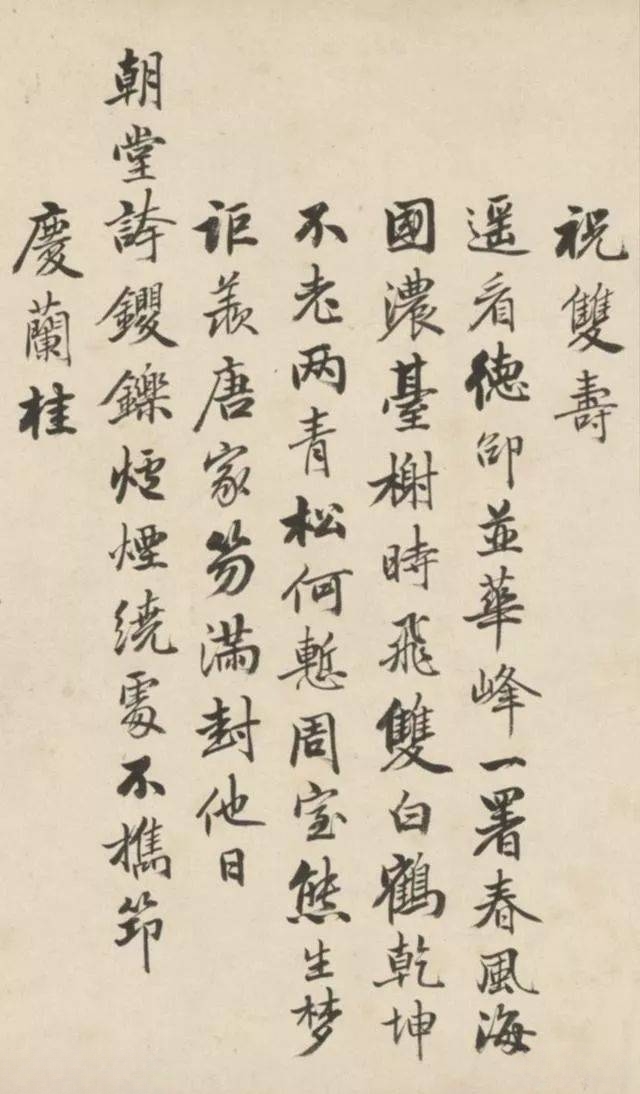 祝雙壽
遥看德邵並華峰一署春風海
國濃臺榭時飛雙白鶴乾坤
不老两青松何慙周室熊生梦
詎羡唐家笏满封他日
朝堂誇钁鑠爐煙繞處不携筇
慶蘭桂